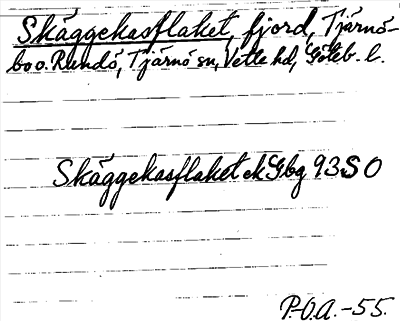 Skäggekasflaket, fjord, Tjärnö-
bo o. Rundö, Tjärnö sn, Vette hd, Göteb. l.
Skäggekasflaket ek Gbg 93 SO
P.O.A.-55.